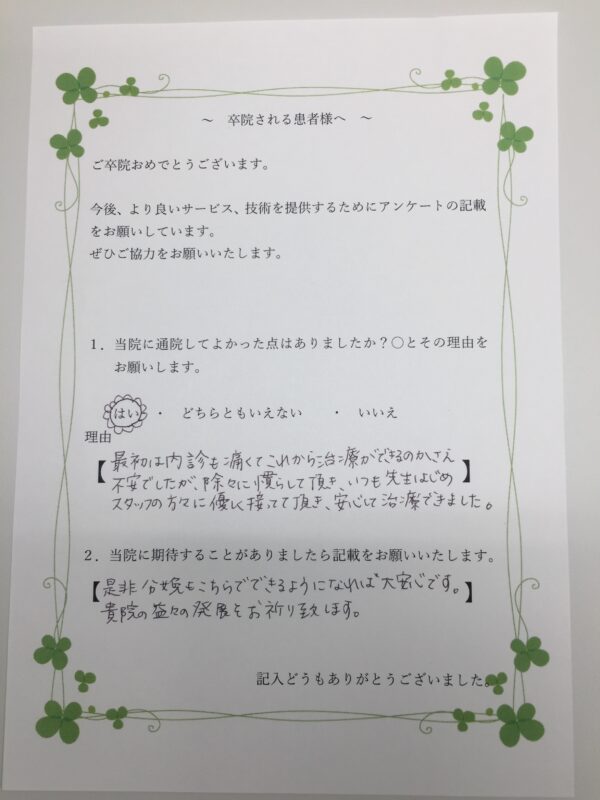 ～ 卒院される患者様へ ～
ご卒院おめでとうございます。
今後、より良いサービス、技術を提供するためにアンケートの記載
をお願いしています。
ぜひご協力をお願いいたします。
１．当院に通院してよかった点はありましたか？○とその理由を
お願いします。
はい ・ どちらともいえない ・ いいえ
理由
【最初は内診も痛くてこれから治療ができるのかさえ
不安でしたが、除々に慣らして頂き、いつも先生はじめ
スタッフの方々に優しく接して頂き、安心して治療できました。】
２．当院に期待することがありましたら記載をお願いいたします。
【是非分娩もこちらでできるようになれば大安心です。
貴院の益々の発展をお祈り致します。】
記入どうもありがとうございました。